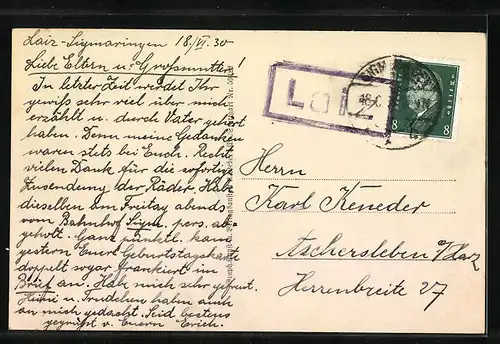 Laiz-Sigmaringen 18./VI. 30
Liebe Eltern u. Grossmutter!
In letzter Zeit werdet Ihr
gewiß sehr viel über mich
erzählt u. durch Vater gehört
haben. Denn meine Gedanken
waren stets bei Euch. Recht
vielen Dank für die sofortige
Zusendung der Räder. Habe
dieselben am Freitag abends
vom Bahnhof Sigm. pers. ab-
geholt. Ganz pünktl. kam
gestern Euere Geburtstagskarte
doppelt sogar frankiert im
Brief an. Hab mich sehr gefreut.
Heine u. Trudchen haben auch
an mich gedacht. Seid bestens
gegrüßt v. Euerm Erich.
Laiz
8 8
Herrn
Karl Keneder
Aschersleben a/Harz
Herrenbreite 27